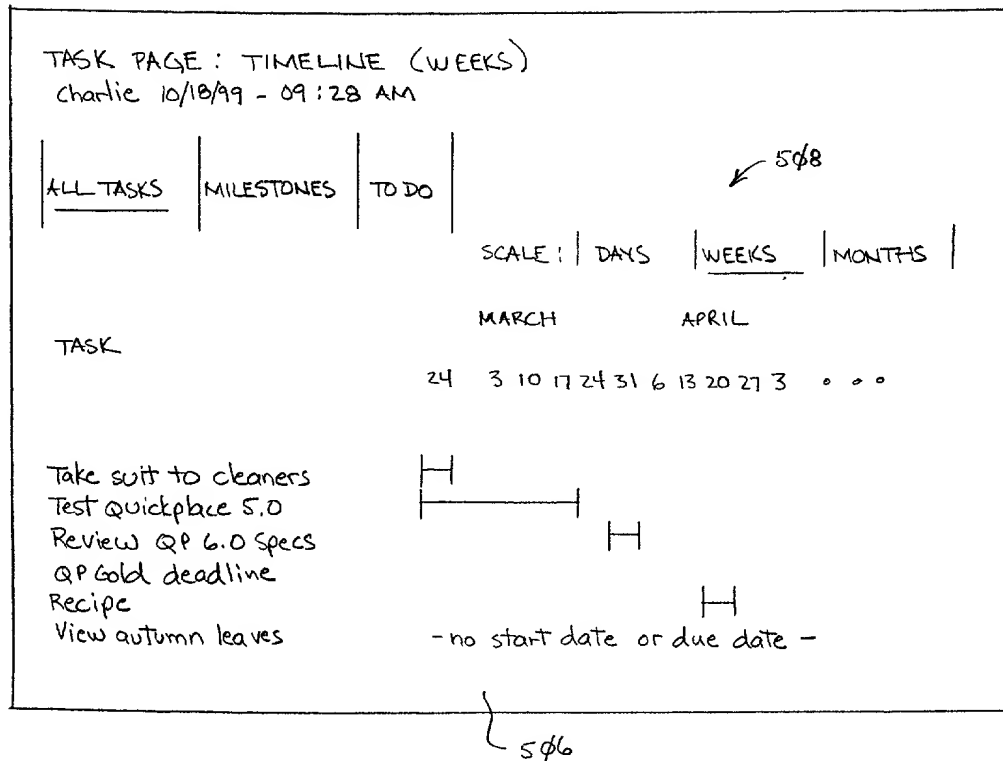 TASK PAGE: TIMELINE (WEEKS)
Charlie 10/18/99 - 09:28 AM
508
ALL TASKS MILESTONES TO DO
SCALE: DAYS WEEKS MONTHS
MARCH APRIL
TASK
24 3 10 17 24 31 6 13 20 27 3 • • •
Take suit to cleaners
Test Quickplace 5.0
Review QP 6.0 Specs
QP Gold deadline
Recipe
View autumn leaves - no start date or due date -
506